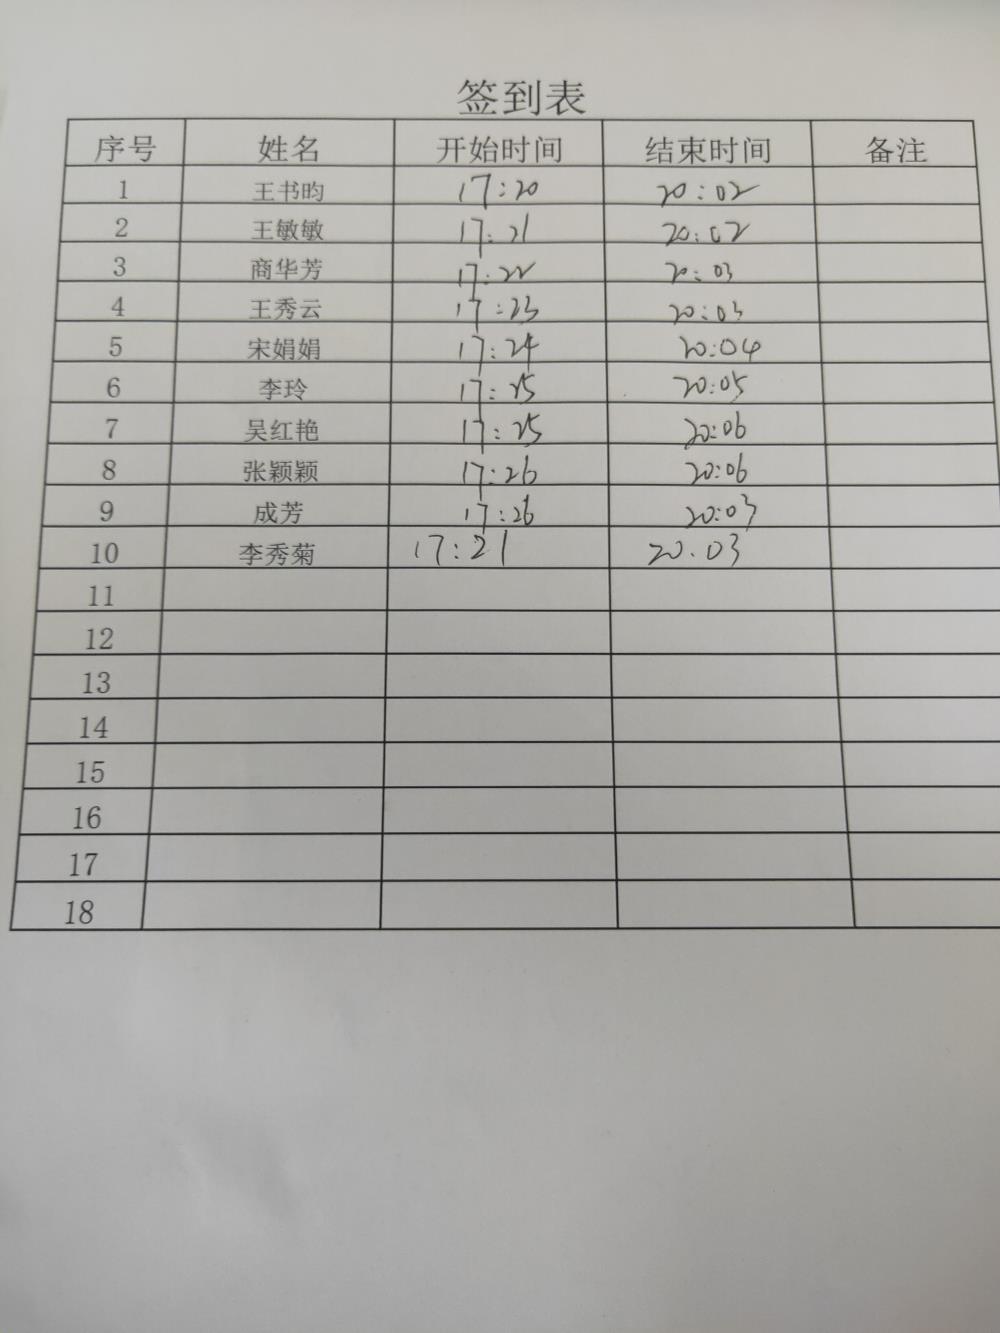 签到表
序号 姓名 开始时间 结束时间 备注
1 王书昀 17:20 20:02
2 王敏敏 17:21 20:02
3 商华芳 17:22 20:03
4 王秀云 17:23 20:03
5 宋娟娟 17:24 20:04
6 李玲 17:25 20:05
7 吴红艳 17:25 20:06
8 张颖颖 17:26 20:06
9 成芳 17:26 20:03
10 李秀菊 17:21 20.03
11
12
13
14
15
16
17
18